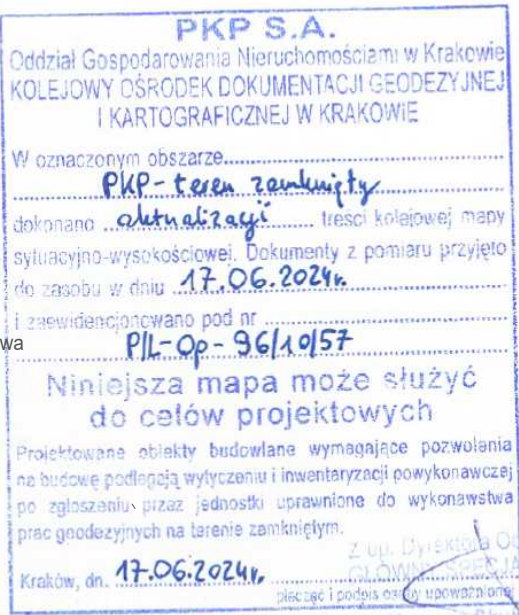 PKP S.A.
Oddział Gospodarowania Nieruchomościami w Krakowie
KOLEJOWY OŚRODEK DOKUMENTACJI GEODEZYJNEJ
I KARTOGRAFICZNEJ W KRAKOWIE
W oznaczonym obszarze
PKP - teren zamknięty
dokonano aktualizacji treści kolejowej mapy
sytuacyjno-wysokościowej. Dokumenty z pomiaru przyjęto
do zasobu w dniu 17.06.2024r.
i zaewidencjonowano pod nr
wa
P/L-Op-96/10/57
Niniejsza mapa może służyć
do celów projektowych
Projektowane obiekty budowlane wymagające pozwolenia
na budowę podlegają wytyczeniu i inwentaryzacji powykonawczej
po zgłoszeniu przez jednostki uprawnione do wykonawstwa
prac geodezyjnych na terenie zamkniętym.
Z up. Dyrektora
GŁÓWNY
Kraków, dn. 17.06.2024r.
pieczęć i podpis osoby upoważnionej